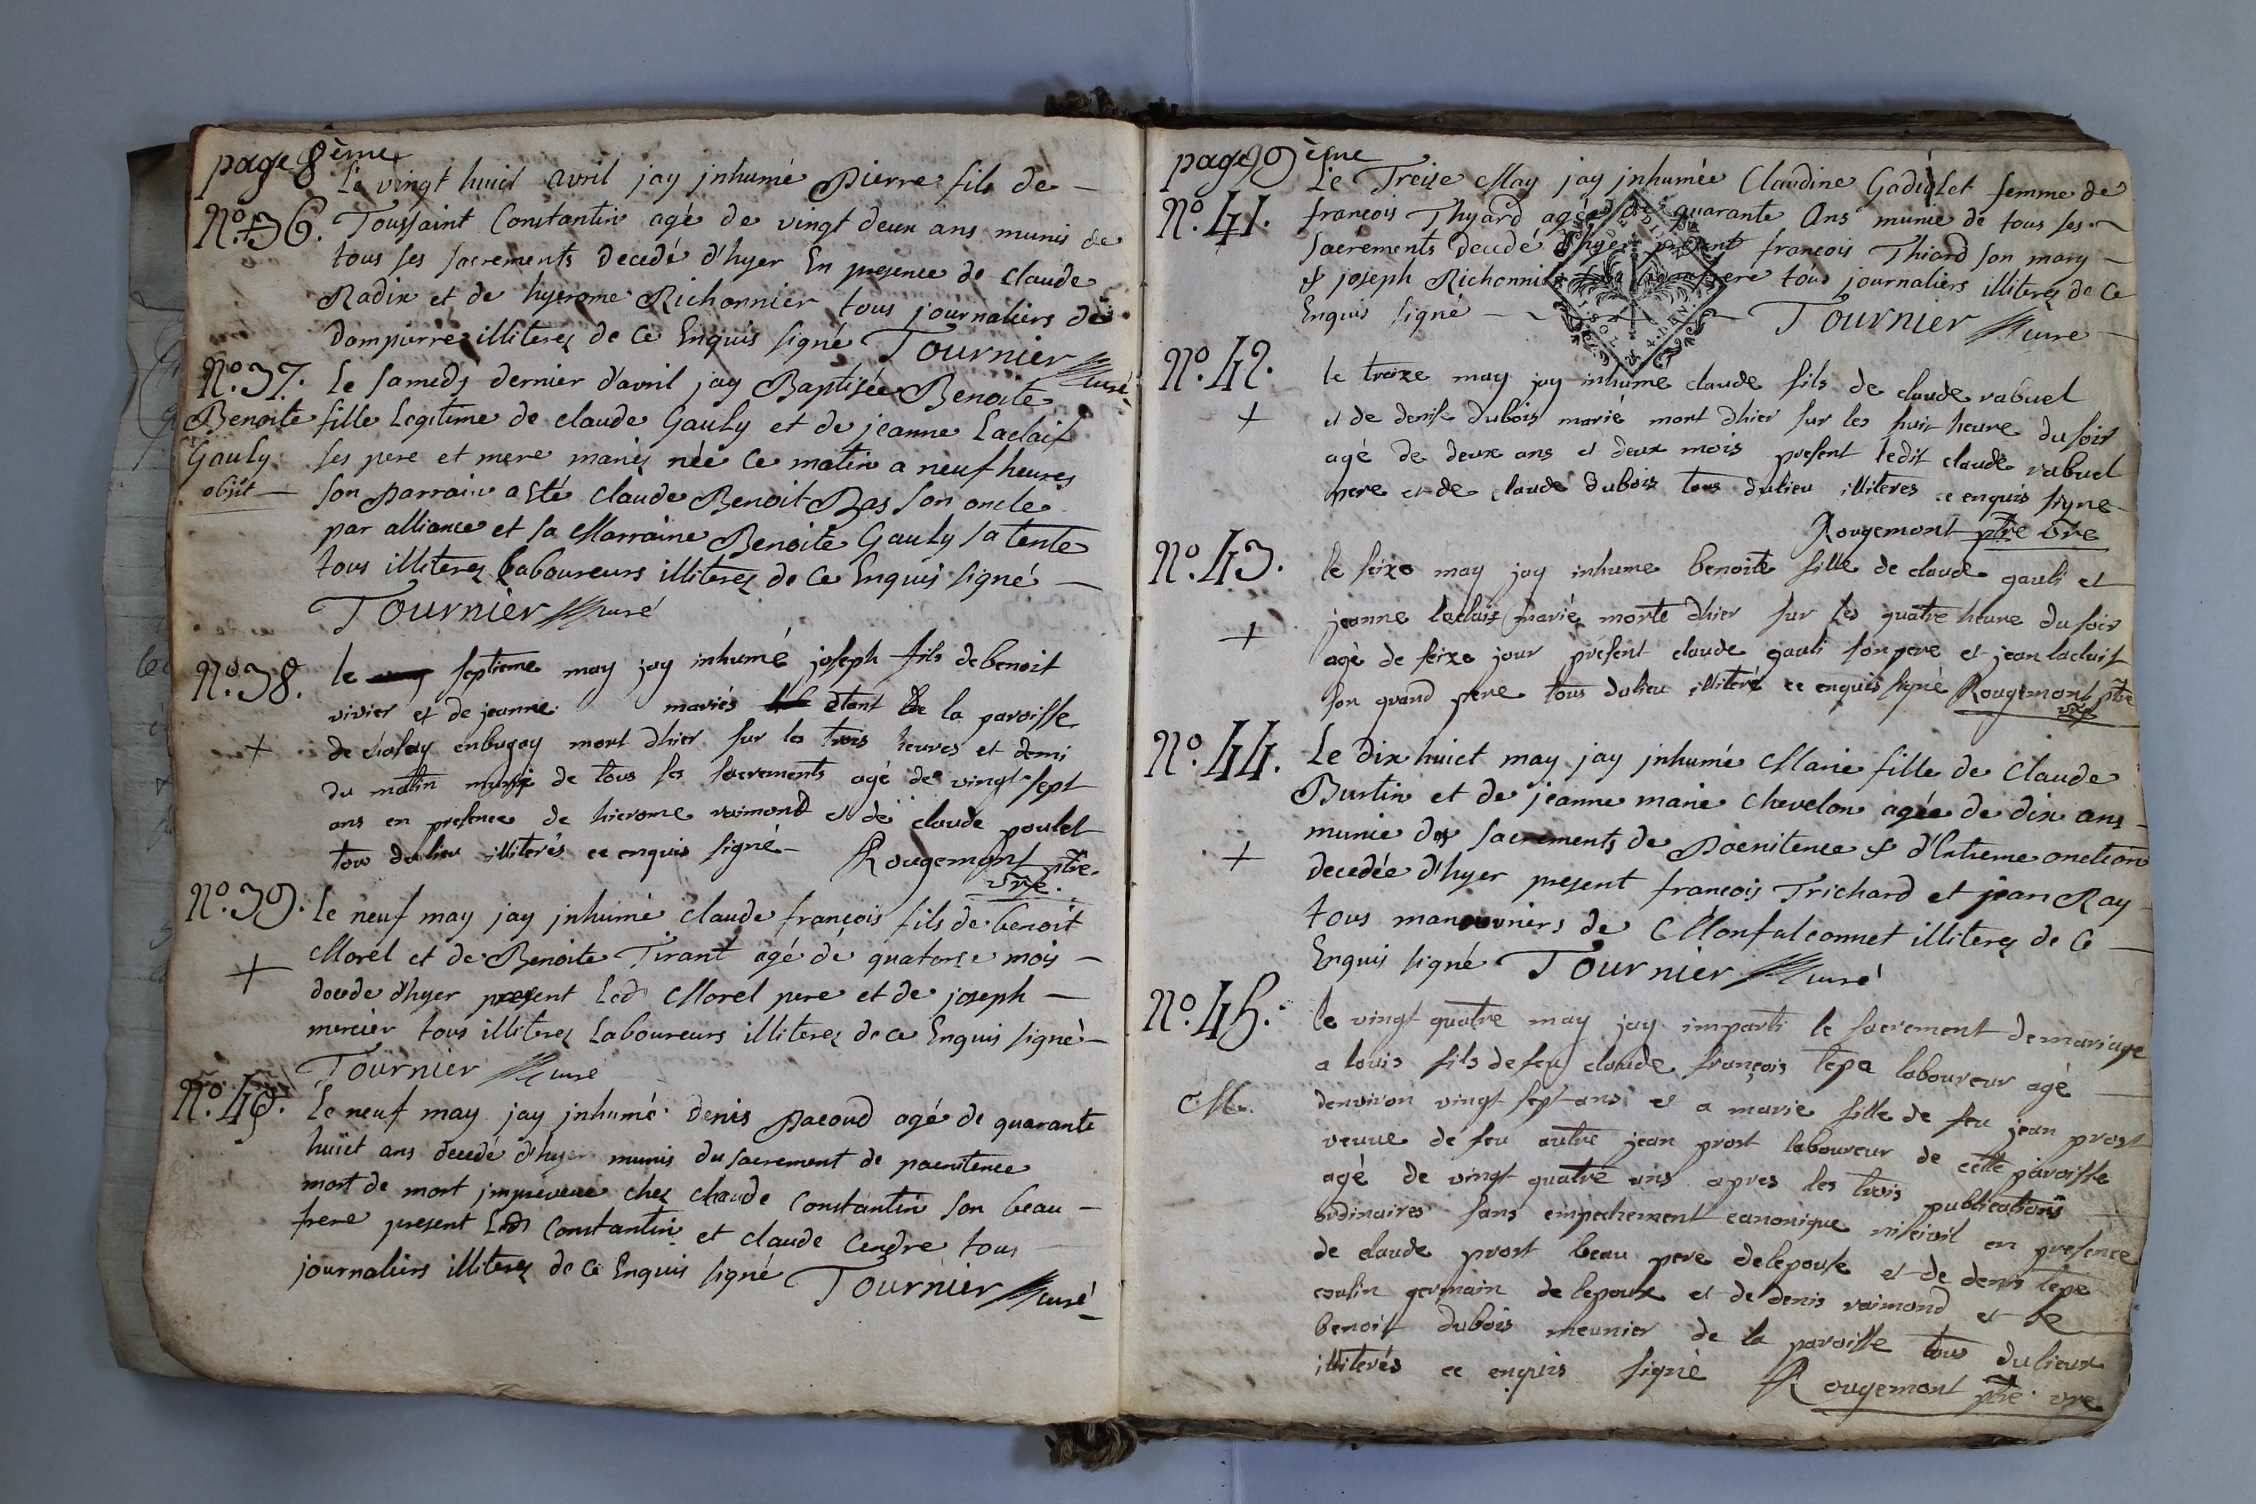 page 8ème
Le vingt huict avril jay jnhumé Pierre fils de
N.º 36. Toussaint Constantin agé de vingt deux ans munis de
tous ses sacrements decedé d'hyer En presence de claude
Radix et de hyerome Richonnier tous journaliers de
Dompierre illiterez de ce Enquis signé Tournier curé
N.º 37. Le samedy dernier d'avril jay Baptisée Benoite
Benoite fille Legitime de claude Gauly et de jeanne Laclait
Gauly ses pere et mere mariez née ce matin a neuf heures
obiit son parrain a esté claude Benoit Bas son oncle
par alliance et sa Marraine Benoite Gauly sa tente
tous illiterez Laboureurs illiterez de ce Enquis signé
Tournier curé
N.º 38. le septieme may jay inhumé joseph fils de benoit
vivier et de jeanne mariés etant de la paroisse
+ de cholay enbugey mort dhier sur les trois heures et demi
du matin muni de tous ses sacrements agé de vingt sept
ans en presence de hierome raimond et de claude poulet
tous dulieu illiterés ce enquis signé Rougemont ptre
vre.
N.º 39. Le neuf may jay jnhumé claude françois fils de benoit
+ Morel et de Benoite Tirant agé de quatorse mois
decede d'hyer present Led Morel pere et de joseph
mercier tous illiterez Laboureurs illiterez de ce Enquis signé
Tournier curé
N.º 40. Le neuf may jay jnhumé denis Pacoud agé de quarante
huict ans decedé d'hyer munis du sacrement de poenitence
mort de mort jmpreveue chez claude Constantin son beau
frere present Led Constantin et claude Cendre tous
journaliers illiterez de ce Enquis signé Tournier curé
page 9ème
Le Treize May jay jnhumée Claudine Gadiolet femme de
N.º 41. francois Thyard agée de quarante Ans munie de tous ses
sacrements decedé d'hyer present francois Thiard son mary
& joseph Richonnier frere tous journaliers illiterez de ce
Enquis signé Tournier curé
N.º 42. le treize may jay inhume claude fils de claude rabuel
+ et de denise dubois marié mort dhier sur les huit heure du soir
agé de deux ans et deux mois present ledit claude rabuel
pere et de claude dubois tous dulieu illiteres ce enquis signe
Rougemont ptre vre
N.º 43. le seize may jay inhume benoite fille de claude gauli et
+ jeanne leclait marié morte dhier sur les quatre heure du soir
agé de seize jour present claude gauli son pere et jean laclait
son grand pere tous dulieu illiteré ce enquis signé Rougemont ptre
vre
N.º 44. Le dix huict may jay jnhumé Marie fille de Claude
Burtin et de jeanne marie Chevelon agée de dix ans
+ munie des sacrements de Poenitence & d'Extreme onction
decedée d'hyer present francois Trichard et jean Ray
tous manouvriers de Monfalconnet illiterez de ce
Enquis signé Tournier curé
N.º 45. le vingt quatre may jay imparti le sacrement de mariage
a louis fils de feu claude françois tepe laboureur agé
M. denviron vingt sept ans et a marie fille de feu jean prost
veuve de feu autre jean prost laboureur de cette paroisse
agé de vingt quatre ans apres les trois publications
ordinaires sans empechement canonique nicivil en presence
de claude prost beau pere delepouse et de denis tepe
cousin germain de lepoux et de denis raimond et de
benoit dubois meunier de la paroisse tous dulieux
illiterés ce enquis signé Rougemont ptre vre